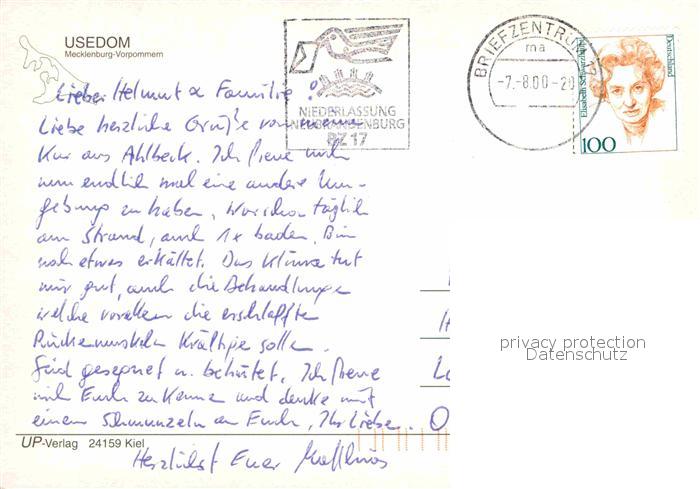 USEDOM
Mecklenburg-Vorpommern
NIEDERLASSUNG
NEUBRANDENBURG
BZ 17
BRIEFZENTRUM 17
ma
-7.-8.00-20
Deutschland
Elisabeth Schwarzhaupt
100
Lieber Helmut & Familie!
Liebe herzliche Grüße von meiner
Kur aus Ahlbeck. Ich freue mich
nun endlich mal eine andere Um-
gebung zu haben. War schon täglich
am Strand, auch 1x baden. Bin
noch etwas erkältet. Das Klima tut
mir gut, auch die Behandlungen
welche vorallem die erschlaffte
Rückenmuskeln kräftigen sollen.
Seid gesegnet u. behütet. Ich freue
mich Euch zu kennen und denke mit
einem Schmunzeln an Euch, Ihr Lieben.
Herzlichst Euer Matthias
UP-Verlag 24159 Kiel
privacy protection
Datenschutz